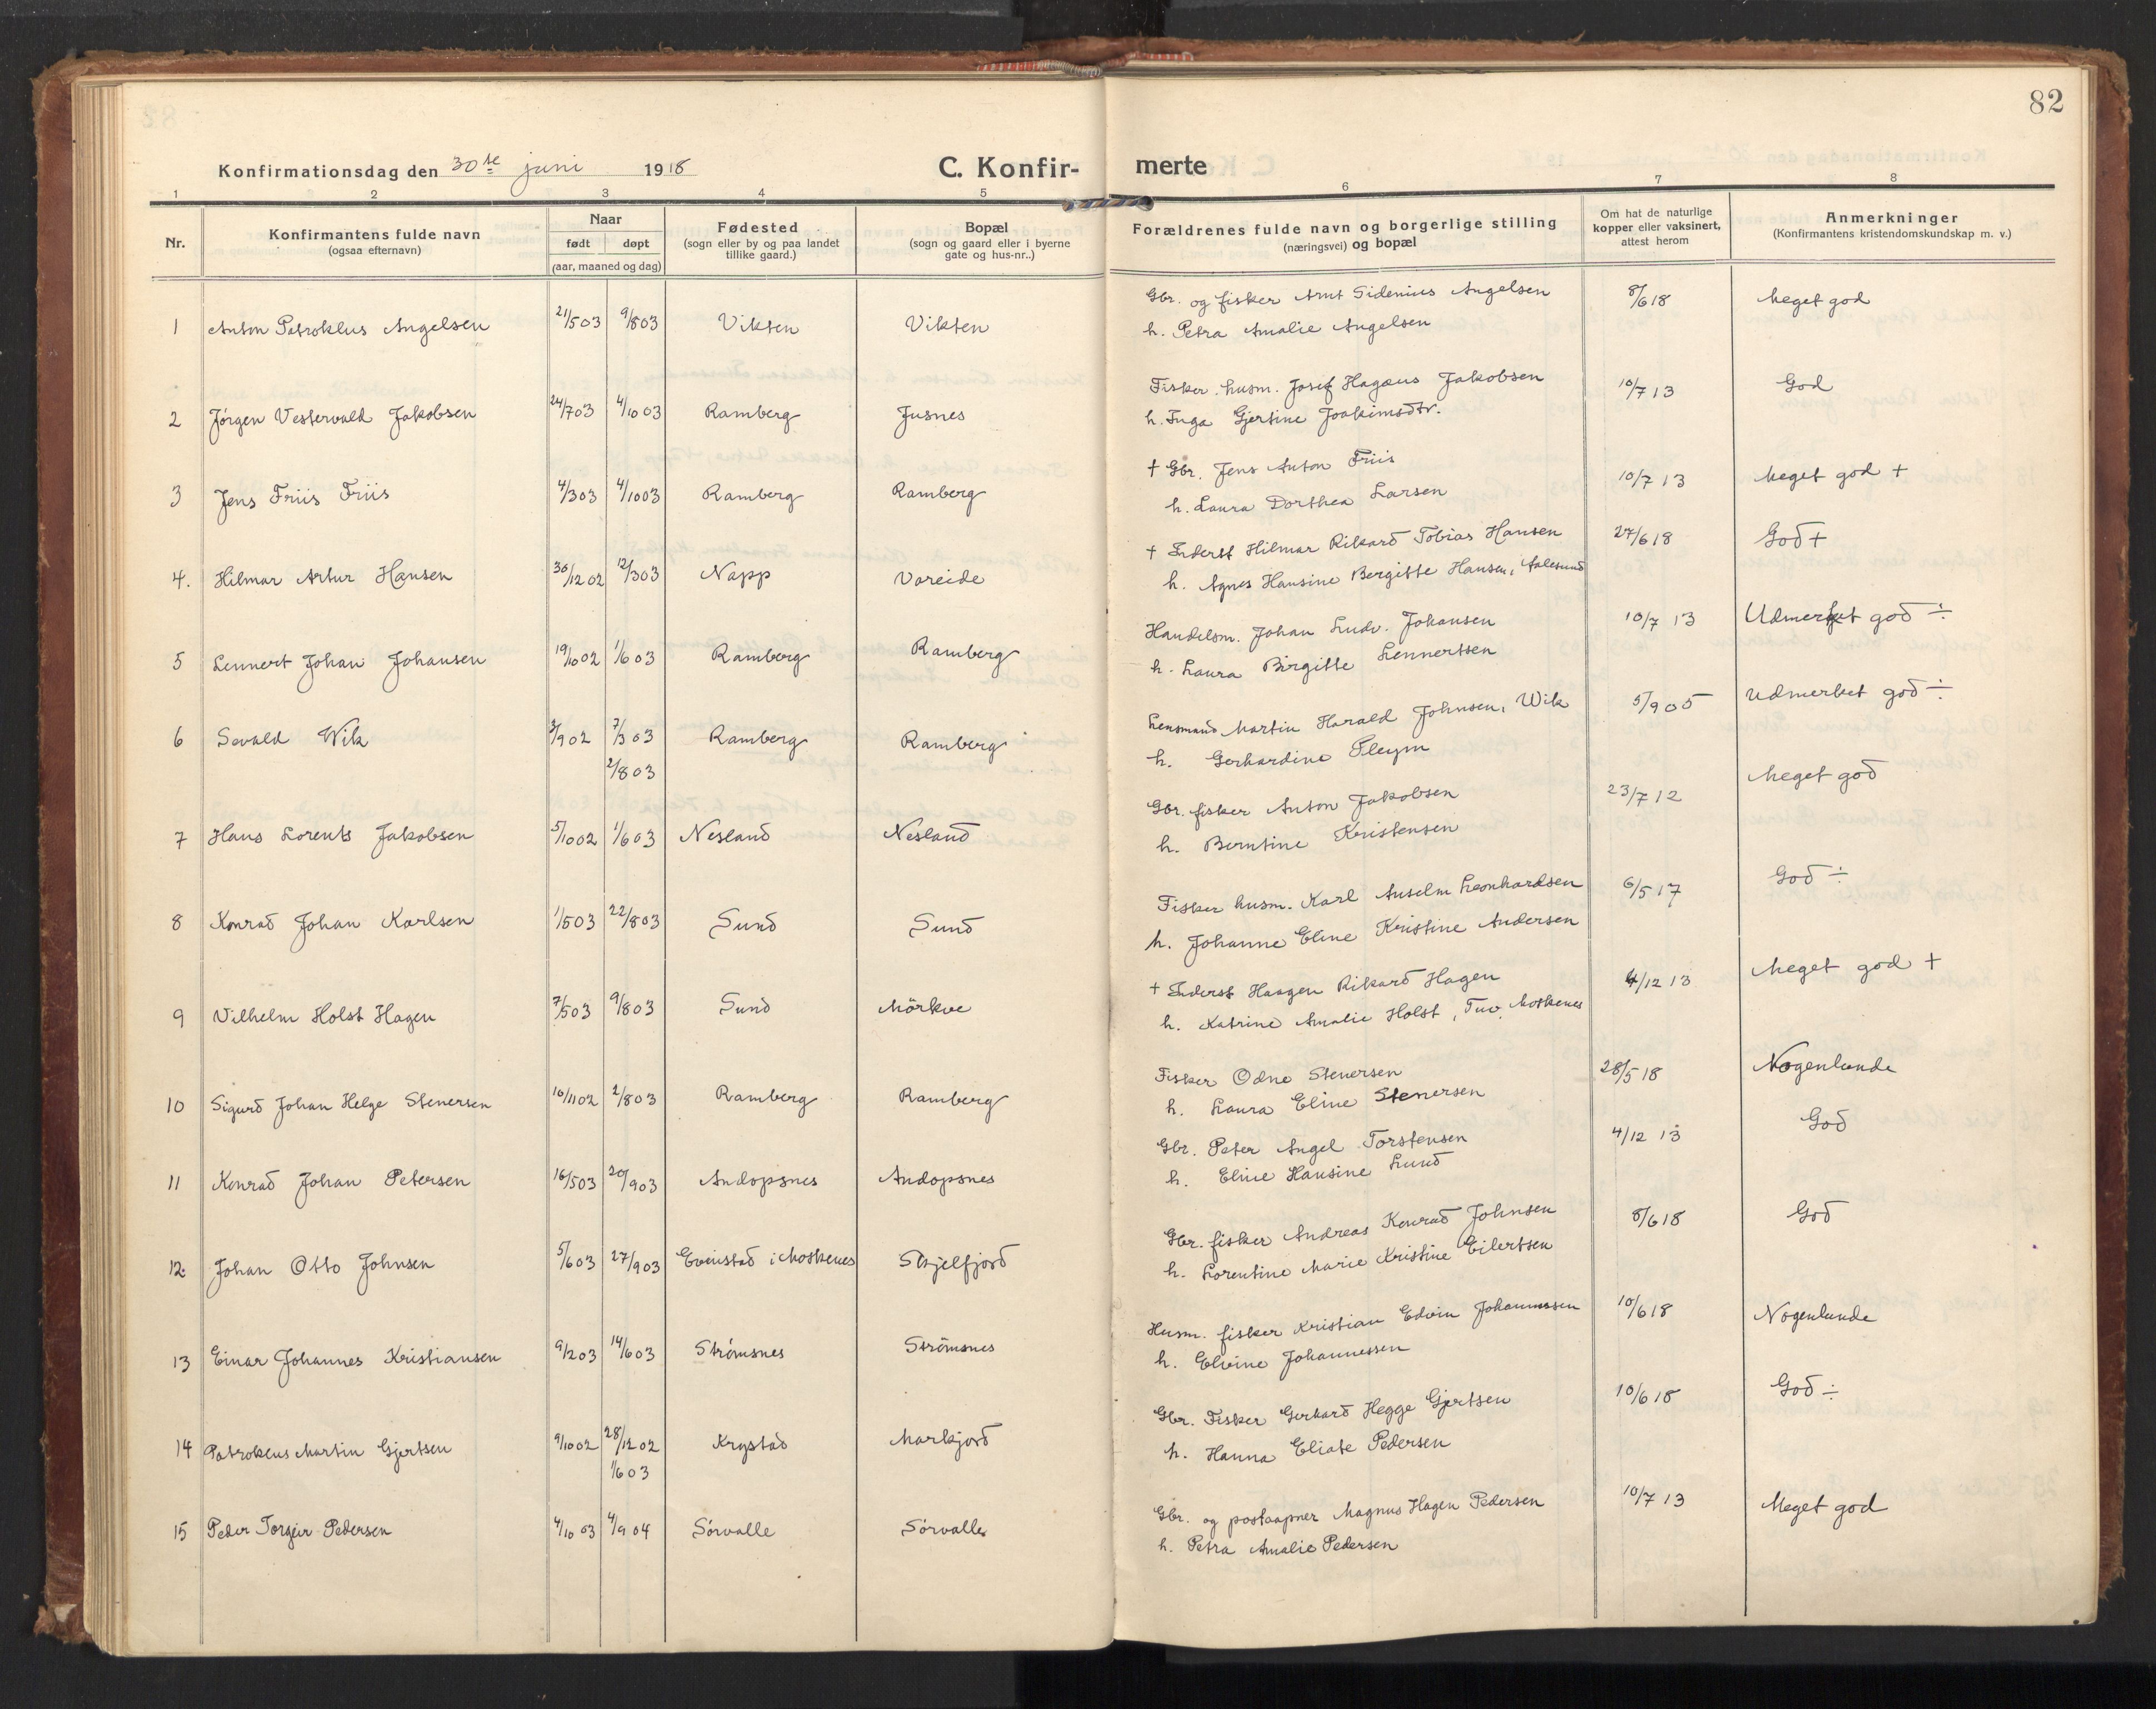 82
Konfirmationsdag den 30te juni 1918
C. Konfir-
merte
1 2 3 4 5 6 7 8
Nr.
Konfirmantens fulde navn
(ogsaa efternavn)
Naar
født døpt
(aar, maaned og dag)
Fødested
(sogn eller by og paa landet
tillike gaard.)
Bopæl
(sogn og gaard eller i byerne
gate og hus-nr..)
Forældrenes fulde navn og borgerlige stilling
(næringsvei) og bopæl
Om hat de naturlige
kopper eller vaksinert,
attest herom
Anmerkninger
(Konfirmantens kristendomskundskap m. v.)
1 Anton Petroklus Angelsen 21/5 03 9/8 03 Vikten Vikten
Gbr. og fisker Arnt Sidenius Angelsen 8/6 18 Meget god
h. Petra Amalie Angelsen
2 Jørgen Vestervald Jakobsen 24/7 03 4/10 03 Ramberg Jusnes
Fisker. husm. Josef Hagæus Jakobsen 10/7 13 God
h. Inga Gjertine Joakimsdtr.
3 Jens Friis Friis 4/3 03 4/10 03 Ramberg Ramberg
† Gbr. Jens Anton Friis 10/7 13 Meget god +
h. Laura Dorthea Larsen
4. Hilmar Artur Hansen 30/12 02 12/3 03 Napp Vareide
† Inderst Hilmar Rikard Tobias Hansen 27/6 18 God +
h. Agnes Hansine Bergitte Hansen, Aalesund
5 Lennert Johan Johansen 19/10 02 1/6 03 Ramberg Ramberg
Handelsm. Johan Ludv. Johansen 10/7 13 Udmerket god ÷
h. Laura Birgitte Lennertsen
6 Sevald Wik 3/9 02 7/3 03 Ramberg Ramberg
2/8 03
Lensmand Martin Harald Johnsen, Wik 5/9 05 Udmerket god ÷
h. Gerhardine Pleym
7 Hans Lorents Jakobsen 5/10 02 1/6 03 Nesland Nesland
Gbr. fisker Anton Jakobsen 23/7 12 Meget god
h. Berntine Kristensen
8 Konrad Johan Karlsen 1/5 03 22/8 03 Sund Sund
Fisker husm. Karl Anselm Leonhardsen 6/5 17 God ÷
h. Johanne Eline Kristine Andersen
9 Vilhelm Holst Hagen 7/5 03 9/8 03 Sund Mörkve
† Inderst Haagen Rikard Hagen 4/12 13 Meget god +
h. Katrine Amalie Holst, Tuv, Moskenes
10 Sigurd Johan Helge Stenersen 10/11 02 2/8 03 Ramberg Ramberg
Fisker Odne Stenersen 28/5 18 Nogenlunde
h. Laura Eline Stenersen
11 Konrad Johan Petersen 16/5 03 20/9 03 Andopsnes Andopsnes
Gbr. Peter Angel Torstensen 4/12 13 God
h. Eline Hansine Lund
12. Johan Otto Johnsen 5/6 03 27/9 03 Evenstad i Moskenes Skjelfjord
Gbr. fisker Andreas Konrad Johnsen 8/6 18 God
h. Lorentine Marie Kristine Eilertsen
13 Einar Johannes Kristiansen 9/2 03 14/6 03 Strømsnes Strömsnes
Husm. fisker Kristian Edvin Johannessen 10/6 18 Nogenlunde
h. Elvine Johannessen
14 Patroklus Martin Gjertsen 9/10 02 28/12 02 Krystad Markjord
1/6 03
Gbr. Fisker Gerhard Hegge Gjertsen 10/6 18 God ÷
h. Hanna Eliate Pedersen
15 Peder Torgeir Pedersen 4/10 03 4/9 04 Sörvalle Sörvalle
Gbr. og postaapner Magnus Hagen Pedersen 10/7 13 Meget god
h. Petra Amalie Pedersen